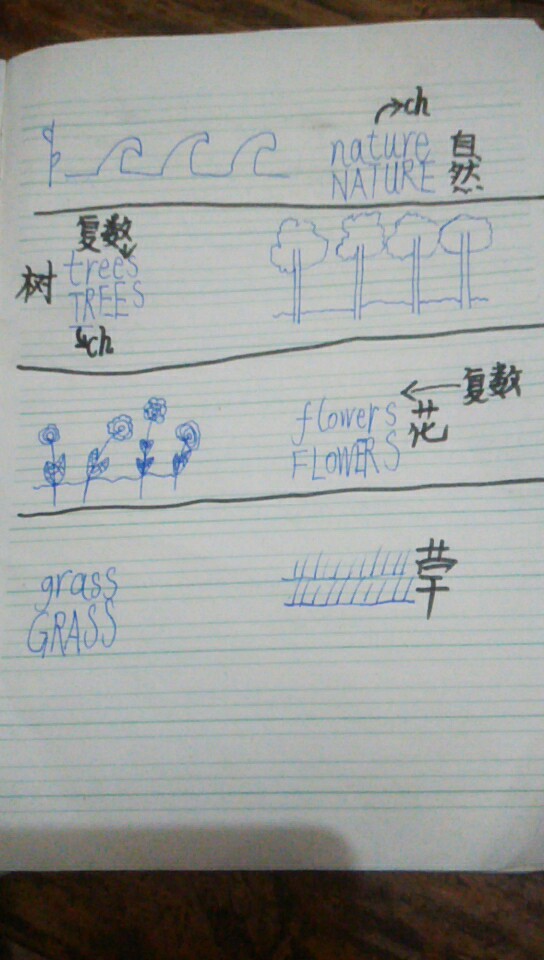 ch
nature 自
NATURE 然
复数
树 trees
TREES
ch
复数
flowers 花
FLOWERS
草
grass
GRASS